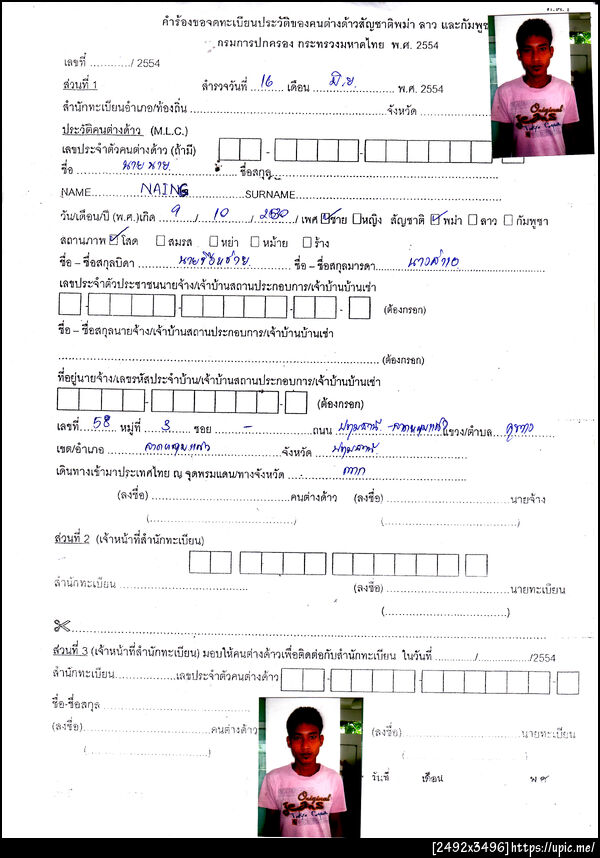 คำร้องขอจดทะเบียนประวัติของคนต่างด้าวสัญชาติพม่า ลาว และกัมพูช
กรมการปกครอง กระทรวงมหาดไทย พ.ศ. 2554
เลขที่ ............/ 2554
ส่วนที่ 1 สำรวจวันที่ 16 เดือน มิ.ย. พ.ศ. 2554
สำนักทะเบียนอำเภอ/ท้องถิ่น ............ จังหวัด ............
ประวัติคนต่างด้าว (M.L.C.)
เลขประจำตัวคนต่างด้าว (ถ้ามี)
ชื่อ นายนาย ชื่อสกุล ............
NAME NAING SURNAME ............
วัน/เดือน/ปี (พ.ศ.)เกิด 9 / 10 / 2530 / เพศ ☑ชาย ☐หญิง สัญชาติ ☑พม่า ☐ลาว ☐กัมพูชา
สถานภาพ ☑โสด ☐สมรส ☐หย่า ☐หม้าย ☐ร้าง
ชื่อ – ชื่อสกุลบิดา ชื่อ – ชื่อสกุลมารดา
เลขประจำตัวประชาชนนายจ้าง/เจ้าบ้านสถานประกอบการ/เจ้าบ้านบ้านเช่า
(ต้องกรอก)
ชื่อ – ชื่อสกุลนายจ้าง/เจ้าบ้านสถานประกอบการ/เจ้าบ้านบ้านเช่า
(ต้องกรอก)
ที่อยู่นายจ้าง/เลขรหัสประจำบ้าน/เจ้าบ้านสถานประกอบการ/เจ้าบ้านบ้านเช่า
(ต้องกรอก)
เลขที่ 58 หมู่ที่ 3 ซอย - ถนน ปทุมธานี - ลาดหลุมแก้ว แขวง/ตำบล คูขวาง
เขต/อำเภอ ลาดหลุมแก้ว จังหวัด ปทุมธานี
เดินทางเข้ามาประเทศไทย ณ จุดพรมแดน/ทางจังหวัด ตาก
(ลงชื่อ) ............ คนต่างด้าว (ลงชื่อ) ............ นายจ้าง
(............) (............)
ส่วนที่ 2 (เจ้าหน้าที่สำนักทะเบียน)
สำนักทะเบียน ............ (ลงชื่อ) ............ นายทะเบียน
(............)
ส่วนที่ 3 (เจ้าหน้าที่สำนักทะเบียน) มอบให้คนต่างด้าวเพื่อติดต่อกับสำนักทะเบียน ในวันที่ ............/............/2554
สำนักทะเบียน............เลขประจำตัวคนต่างด้าว
ชื่อ-ชื่อสกุล ............
(ลงชื่อ)............คนต่างด้าว (ลงชื่อ)............นายทะเบียน
(............) (............)
วันที่ เดือน พ.ศ.
Original
Original
[2492x3496]https://upic.me/